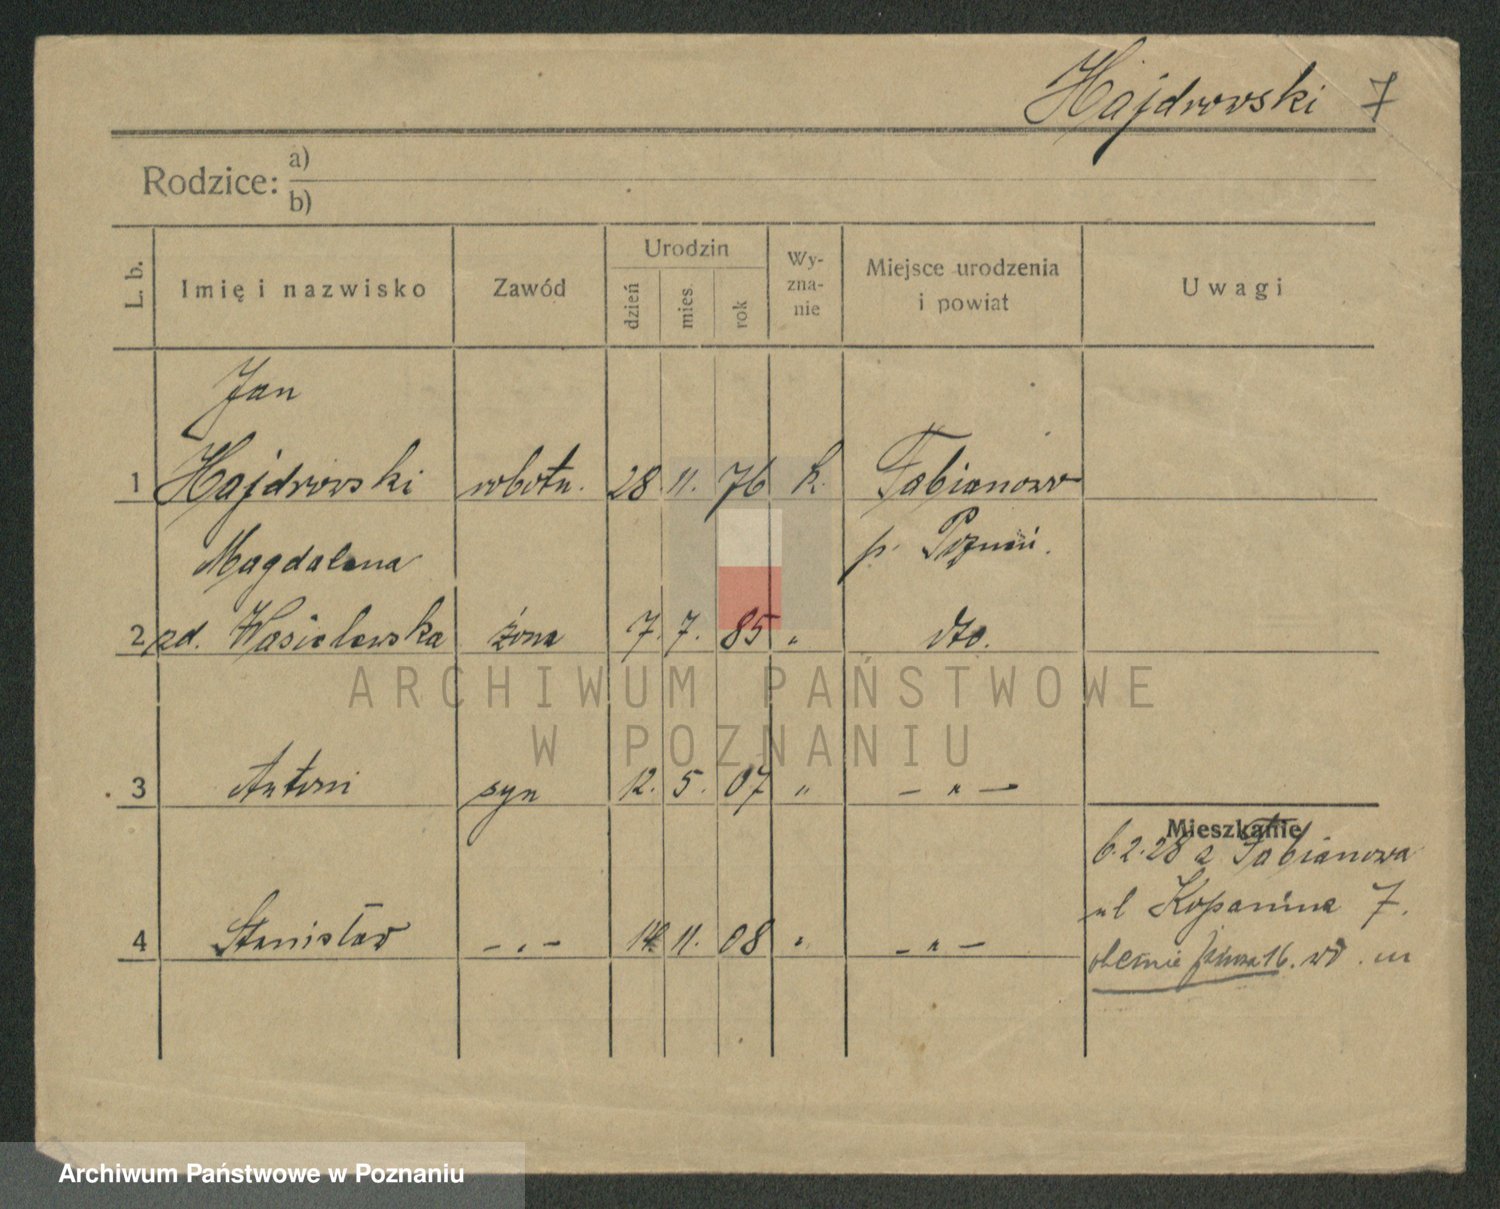 Hajdrowski 7
Rodzice: a)
b)
L. b. Imię i nazwisko Zawód Urodzin dzień mies. rok Wy-zna-nie Miejsce urodzenia i powiat Uwagi
Jan
1 Hajdrowski robotn. 28 11. 76 k. Fabianowo
Magdalena p. Poznań.
2 zd. Wasielewska żona 7. 7. 85 " dto.
ARCHIWUM PAŃSTWOWE
W POZNANIU
3 Antoni syn 12. 5. 07 " — " —
Mieszkanie
6.2.28 z Fabianowa
4 Stanisław — " — 14 11. 08 " — " —
ul Kopanina 7.
obecnie 16.
Archiwum Państwowe w Poznaniu